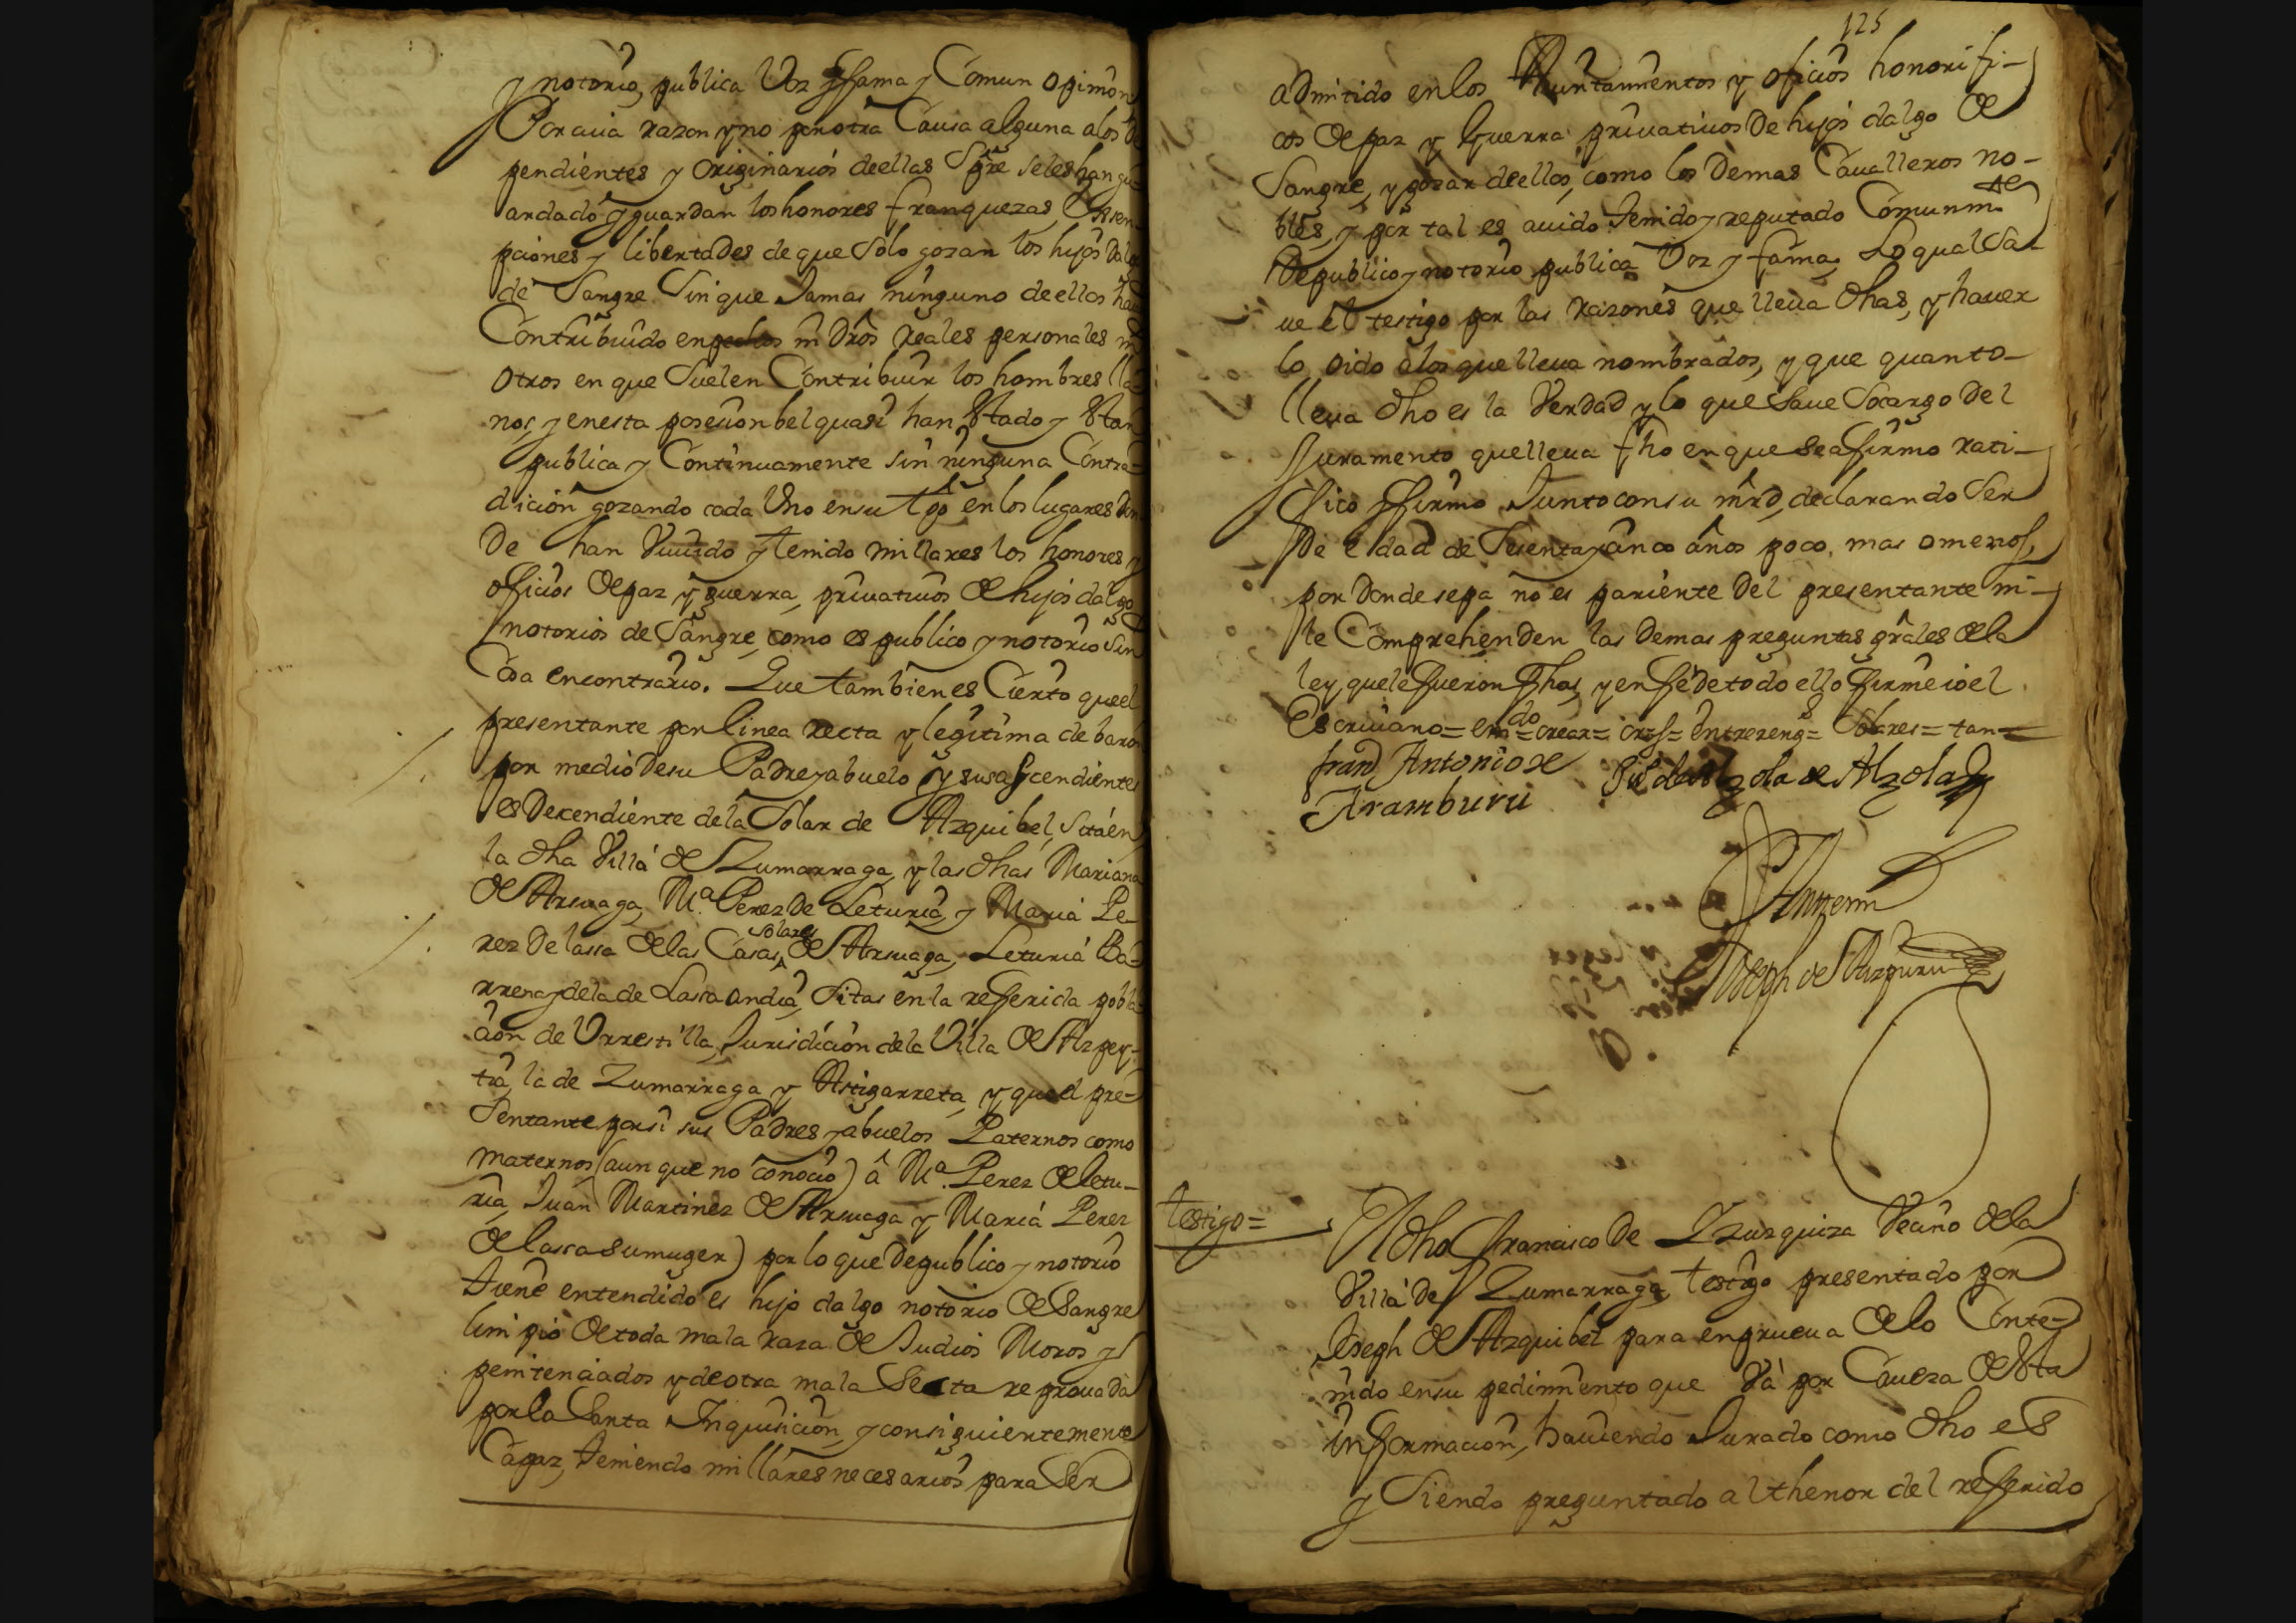 y notorio, publica Voz y fama y Comun opinion
Por cuia razon y no por otra Causa alguna a los de
pendientes y originarios de ellas Sp̃re seles han gu
ardado y guardan los honores franquezas, Essen
pciones y libertades de que Solo gozan los hijos dalgo
de Sangre Sin que Jamas ninguno de ellos han
Contribuido en pechos ni dr̃os Reales personales ni
otros en que Suelen Contribuir los hombres lla
nos, y en esta posesion bel quasi han Stado y Stan
publica y Continuamente sin ninguna Contra-
dicion gozando cada Uno en su tp̃o en los lugares don
De han Vivido y tenido millares los honores y
oficios de paz y guerra, privativos de hijos dalgo
notorios de Sangre, como es publico y notorio Sin
Cosa encontrario. Que tambien es Cierto que el
presentante por linea recta y legitima de baron
por medio de su Padre y abuelo y sus ascendientes
es Decendiente de la Solar de Azquibel, Sita en
la dha Villa de Zumarraga, y las dhas Mariana
de Arsuaga, Mª. Perez de Leturia, y Maria Pe-
rez de lasca de las Casas Solares de Arsuaga, Leturia Ba-
rrena y de la de Lasca andia, Sitas en la referida pobla-
cion de Urrestilla, Jurisdicion de la Villa de Azpey-
tia, la de Zumarraga y Astigarreta, y que el pre-
Sentante por si sus Padres y abuelos Paternos como
maternos (aun que no conocio) â Mª. Perez de letu-
ria, Juan Martinez de Arsuaga y Maria Perez
de lasca su muger) por lo que de publico y notorio
tiene entendido es hijo dalgo notorio de Sangre
limpio de toda mala raza de Judios Moros y
penitenciados y de otra mala Secta reprovada
por la Santa Inquisicion, y consiguientemente
Capaz, teniendo millares necesarios para Ser
125
admitido en los Ayuntamientos y oficios honorifi-
cos de paz y Guerra privativos de hijos dalgo de
Sangre, y gozar de ellos, como los Demas Cavalleros no-
bles, y por tal es avido tenido y reputado Comunm.te
De publico y notorio publica Voz y fama, Lo qual Sa-
ve el testigo por las razones que lleva dhas, y haver
lo oido a los que lleva nombrados, y que quanto
lleva dho es la Verdad y lo que Save Socargo del
Juramento que lleva fho en que se afirmo rati-
fico y firmo Junto con su mr̃d, declarando Ser
De edad de Sesenta y cinco años poco, mas o menos,
por donde sepa no es pariente del presentante ni
le Comprehenden las demas preguntas gr̃ales de la
ley, que le fueron fhas, y en fe de todo ello firme io el
Escrivano = emdo = crear = = Entrereng.s = Solares = tan =
fran.co Antonio de
Aramburu
de Alzola
Antemi
Joseph de Aizpuru
testigo =
El dho Francisco de Izuzquiza Vecino de la
Villa de Zumarraga, testigo presentado por
Joseph de Azquibel para en prueva de lo Conte-
nido en su pedimiento que Va por Caveza de Sta
informacion, haviendo Jurado como dho es
y Siendo preguntado al thenor del referido